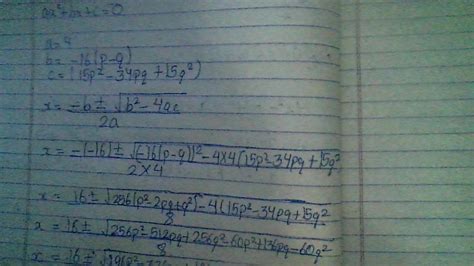 ax²+bx+c=0
a=4
b= -16(p-q)
c= (15p²-34pq+15q²)
x= -b ± √b²-4ac / 2a
x= -(-16) ± √(-16(p-q))²-4×4(15p²-34pq+15q² / 2×4
x= 16 ± √256(p²-2pq+q²)-4(15p²-34pq+15q² / 8
x= 16 ± √256p²-512pq+256q²-60p²+136pq-60q² / 8
x= 16 ± √196p²